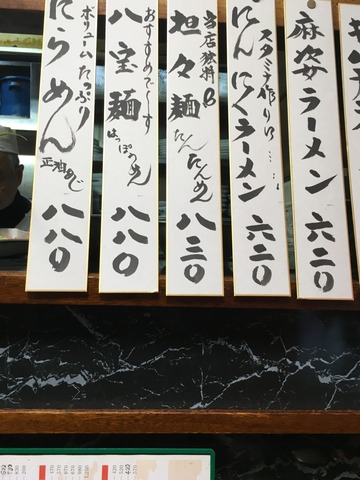 麻婆ラーメン 六二〇
スタミナ作りに・・・
にんにくラーメン 六二〇
当店独特の
坦々麺 たんたんめん 八三〇
おすすめで〜す
八宝麺 はっぽうめん 八八〇
ボリュームたっぷり
にらめん 正油あじ 八八〇